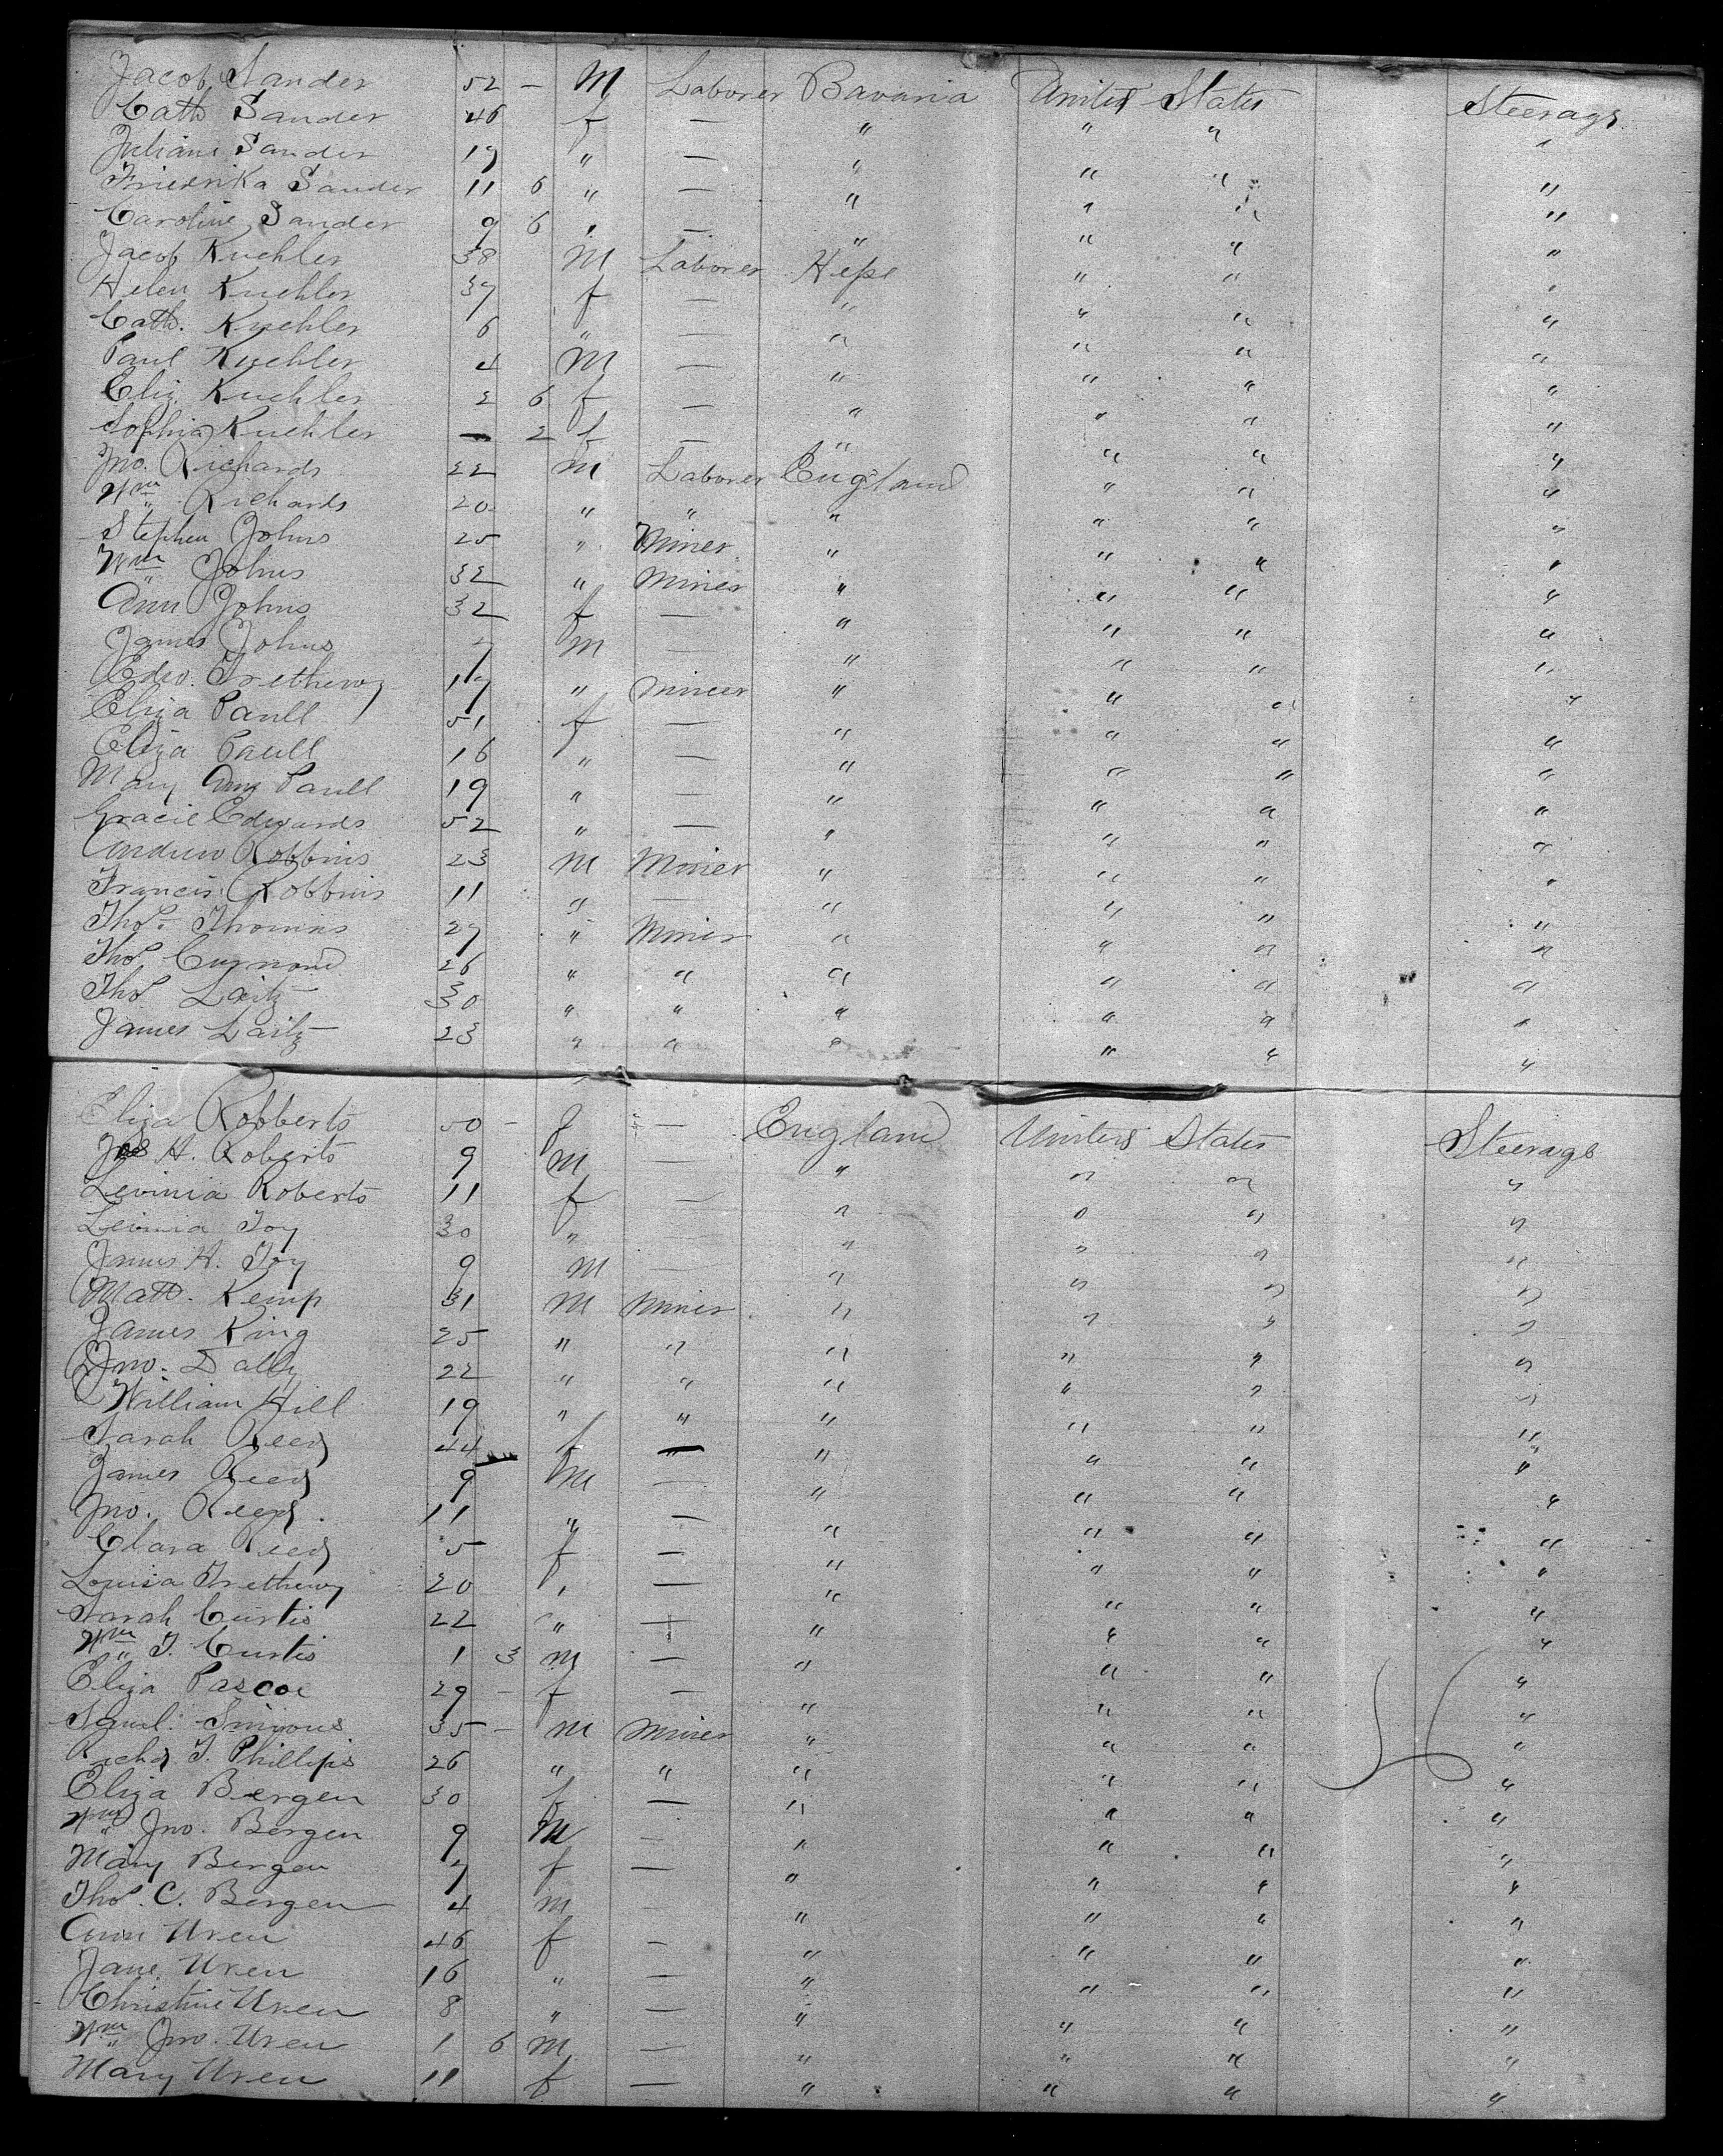 Jacob Sander 52 — M Laborer Bavaria United States Steerage
Cath Sander 46 f — " " " "
Juliane Sander 19 " — " " " "
Friedrika Sander 11 6 " — " " " "
Caroline Sander 9 6 " — " " " "
Jacob Kuehler 38 M Laborer Hesse " " "
Helen Kuehler 37 f — " " " "
Cath. Kuehler 6 " — " " " "
Paul Kuehler 4 M — " " " "
Eliz. Kuehler 2 6 f — " " " "
Sophia Kuehler — 2 f — " " " "
Jno. Richards 22 M Laborer England " " "
Wm Richards 20 " " " " " "
Stephen Johns 25 " Miner " " " "
Wm Johns 32 " Miner " " " "
Ann Johns 32 f — " " " "
James Johns 7 M — " " " "
Edw. Trethewy 17 " Miner " " " "
Eliza Paull 51 f — " " " "
Eliza Paull 16 " — " " " "
Mary Ann Paull 19 " — " " " "
Gracie Edwards 52 " — " " " "
Andrew Robbins 23 M Miner " " " "
Francis Robbins 11 " — " " " "
Thos. Thomas 27 " Miner " " " "
Thos 26 " " " " " "
Thos Laity 30 " " " " " "
James Laity 23 " " " " " "
Eliza Robberts 50 — f — England United States Steerage
Jas H. Roberts 9 M — " " " "
Levinia Roberts 11 f — " " " "
Levinia Toy 30 " — " " " "
James H. Toy 9 M — " " " "
Matt. Kemp 31 M Miner " " " "
James King 25 " " " " " "
Jno. Dally 22 " " " " " "
William Hill 19 " " " " " "
Sarah Reed 44 — f — " " " "
James Reed 9 M — " " " "
Jno. Reed 11 " — " " " "
Clara Reed 5 f — " " " "
Louisa Trethewy 20 " — " " " "
Sarah Curtis 22 " — " " " "
Wm T. Curtis 1 3 M — " " " "
Eliza Pascoe 29 — f — " " " "
Saml. Simons 35 — M Miner " " " "
Richd T. Phillips 26 " " " " " "
Eliza Bergen 30 f — " " " "
Wm Jno. Bergen 9 M — " " " "
Mary Bergen 7 f — " " " "
Thos. C. Bergen 4 M " " " "
Ann Uren 46 f — " " " "
Jane Uren 16 " — " " " "
Christine Uren 8 " — " " " "
Wm Jno. Uren 1 6 M — " " " "
Mary Uren 11 f — " " " "